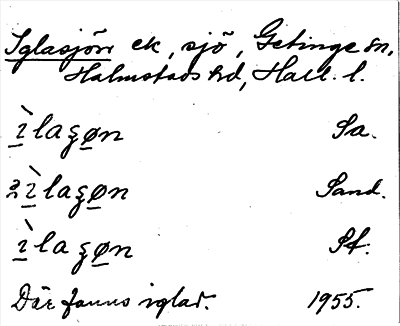 Iglasjön ek, sjö, Getinge sn,
Halmstads hd, Hall. l.
ìlaʒøn Sa.
2 ìlaʒøn Sand.
ìlaʒøn Pf.
Där fanns iglar. 1955.